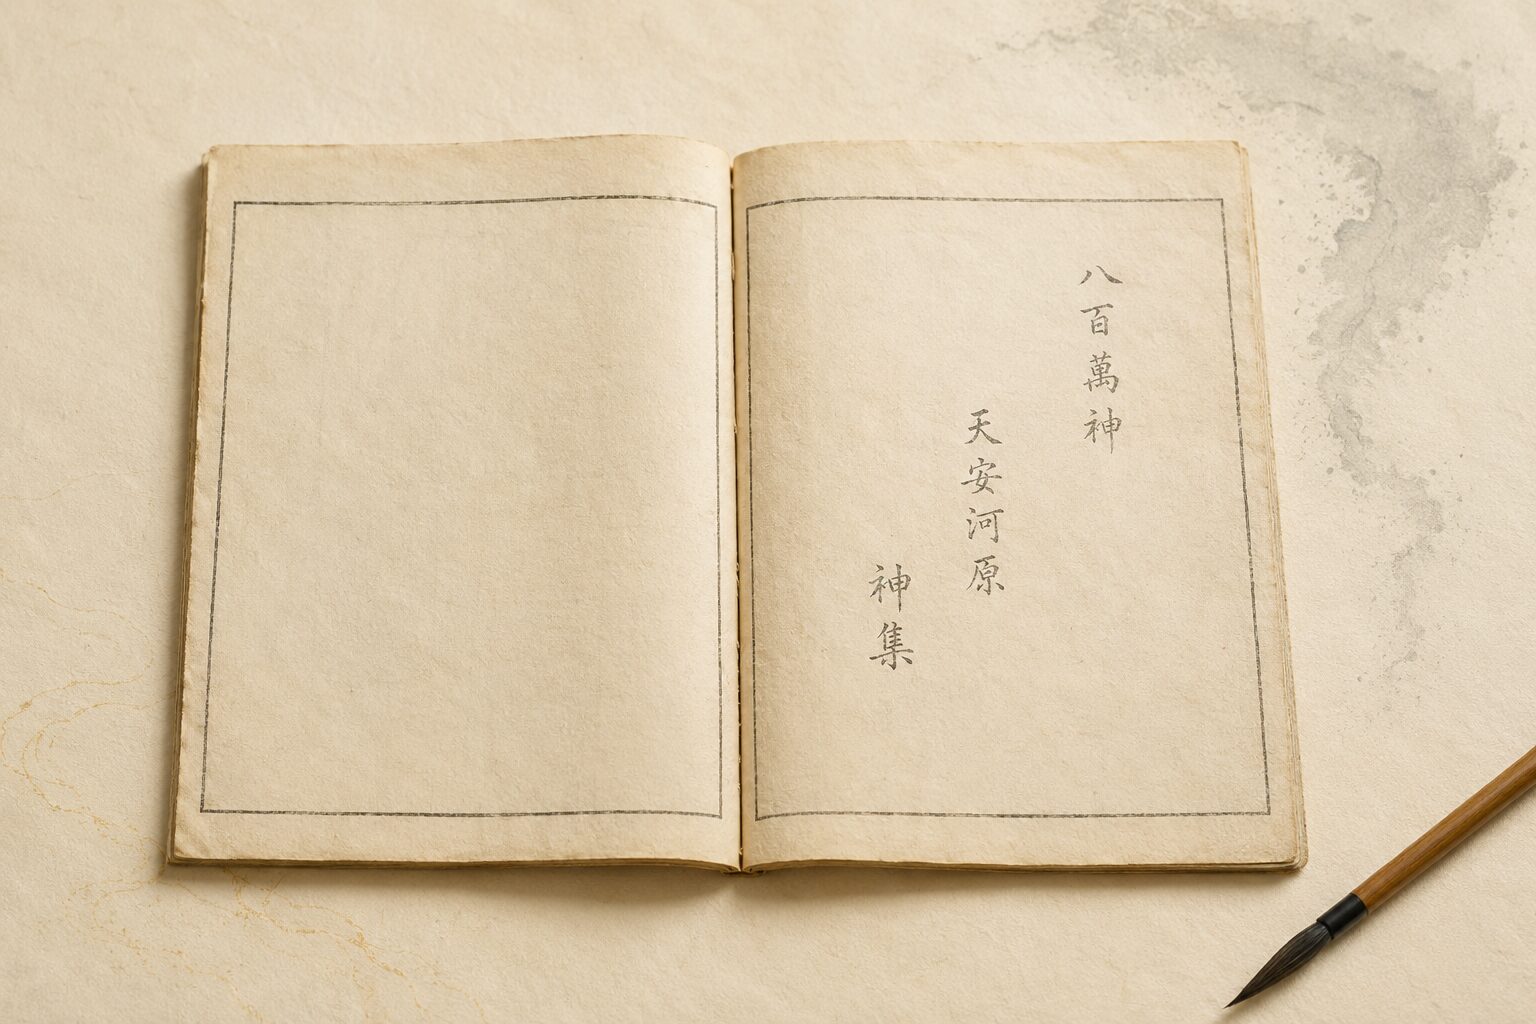 八百萬神
天安河原
神集